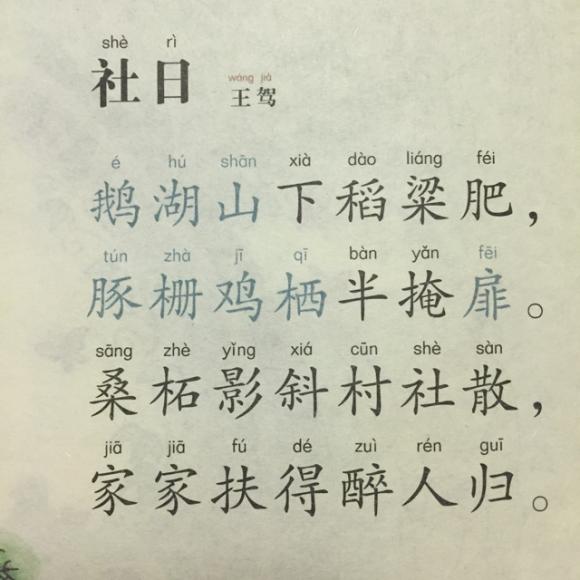 shè rì
社日
wáng jià
王驾
é hú shān xià dào liáng féi
鹅湖山下稻粱肥，
tún zhà jī qī bàn yǎn fēi
豚栅鸡栖半掩扉。
sāng zhè yǐng xiá cūn shè sàn
桑柘影斜村社散，
jiā jiā fú dé zuì rén guī
家家扶得醉人归。